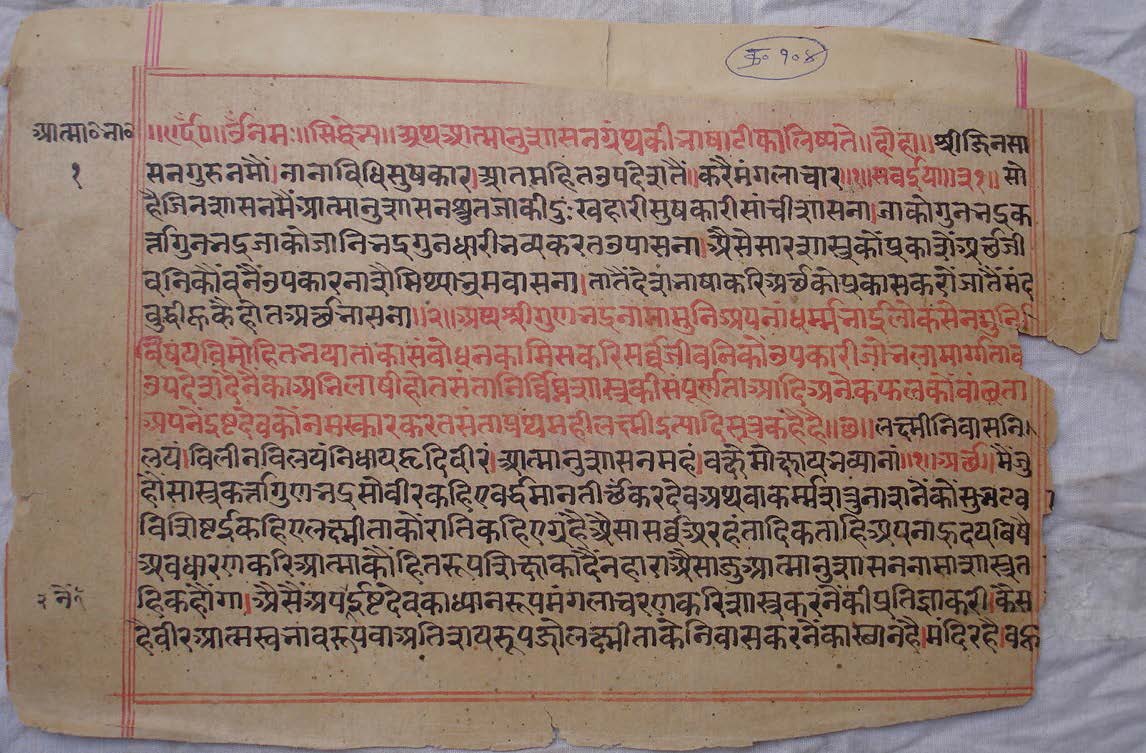 क्र० १०४
आत्मा०भा०
१
॥ॐनमः॥सिद्धेभ्यः॥अथआत्मानुशासनग्रंथकीभाषाटीकालिष्यते॥दोहा॥श्रीजिनसा
सनगुरुनमौं।नानाविधिसुषकार।आतमहितउपदेशतैं।करैमंगलाचार॥१॥सवईया॥३१॥सो
हैजिनशासनमैंआत्मानुशासनश्रुतजाकीदुःखहारीसुषकारीसांचीशासना।जाकोगुनभद्रक
र्त्तागुनभद्रजाकोजानिभद्रगुनधारीभव्यकरतउपासना।अैसेसारशास्त्रकौंप्रकाशेंअर्छजी
वनिकौंवनैंउपकारनाशैमिथ्याभ्रमवासना।तातैंदेशभाषाकरिअर्छकोप्रकासकरौंजातैंमंद
बुद्धीहूकैहोतअर्छभासना॥२॥अथश्रीगुणभद्रनामामुनिअपनाधर्म्मभाईलोकसेनमुनि
विषयविमोहितभयाताकासंवोधनकामिसकरिसर्व्वजीवनिकौंउपकारीजोभलामार्ग्गताका
उपदेशदेनैकाअभिलाषीहोतसंतानिर्विघ्नशास्त्रकीसंपूर्णताआदिअनेकफलकौंवांछता
अपनेंइष्टदेवकौंनमस्कारकरतसंताप्रथमहीलक्ष्मीइत्यादिसूत्रकहैहै॥छ॥लक्ष्मीनिवासनि
लयं।विलीनविलयंनिधायहृदिवीरं।आत्मानुशासनमहं।वक्षेमोक्षायभव्यानां॥१॥अर्छ॥मैंजु
हौंसास्त्रकर्त्तागुणभद्रसोवीरकहिएवर्द्धमानतीर्छंकरदेवअथवाकर्म्मशत्रुनाशनेंकोसुभटव
विशिष्टईकहिएलक्ष्मीताकोरातिकहिएग्रहैअैसासर्व्वअरहंतादिकताहिअपनाहृदयविषै
अवधारणकरिआत्माकौंहितरूपशिक्षाकादैंनहाराअैसाजुआत्मानुशासननामाशास्त्रत
हिकहौंगा।अैसैंअपईष्टदेवकाध्यानरूपमंगलाचरणकरिशास्त्रकरनेंकीप्रतिज्ञाकरी।कैस
हैवीरआत्मस्वभावरूपवाअतिशयरूपजोलक्ष्मीताकेनिवासकरनेंकास्थानहै।मंदिरहै।वहु